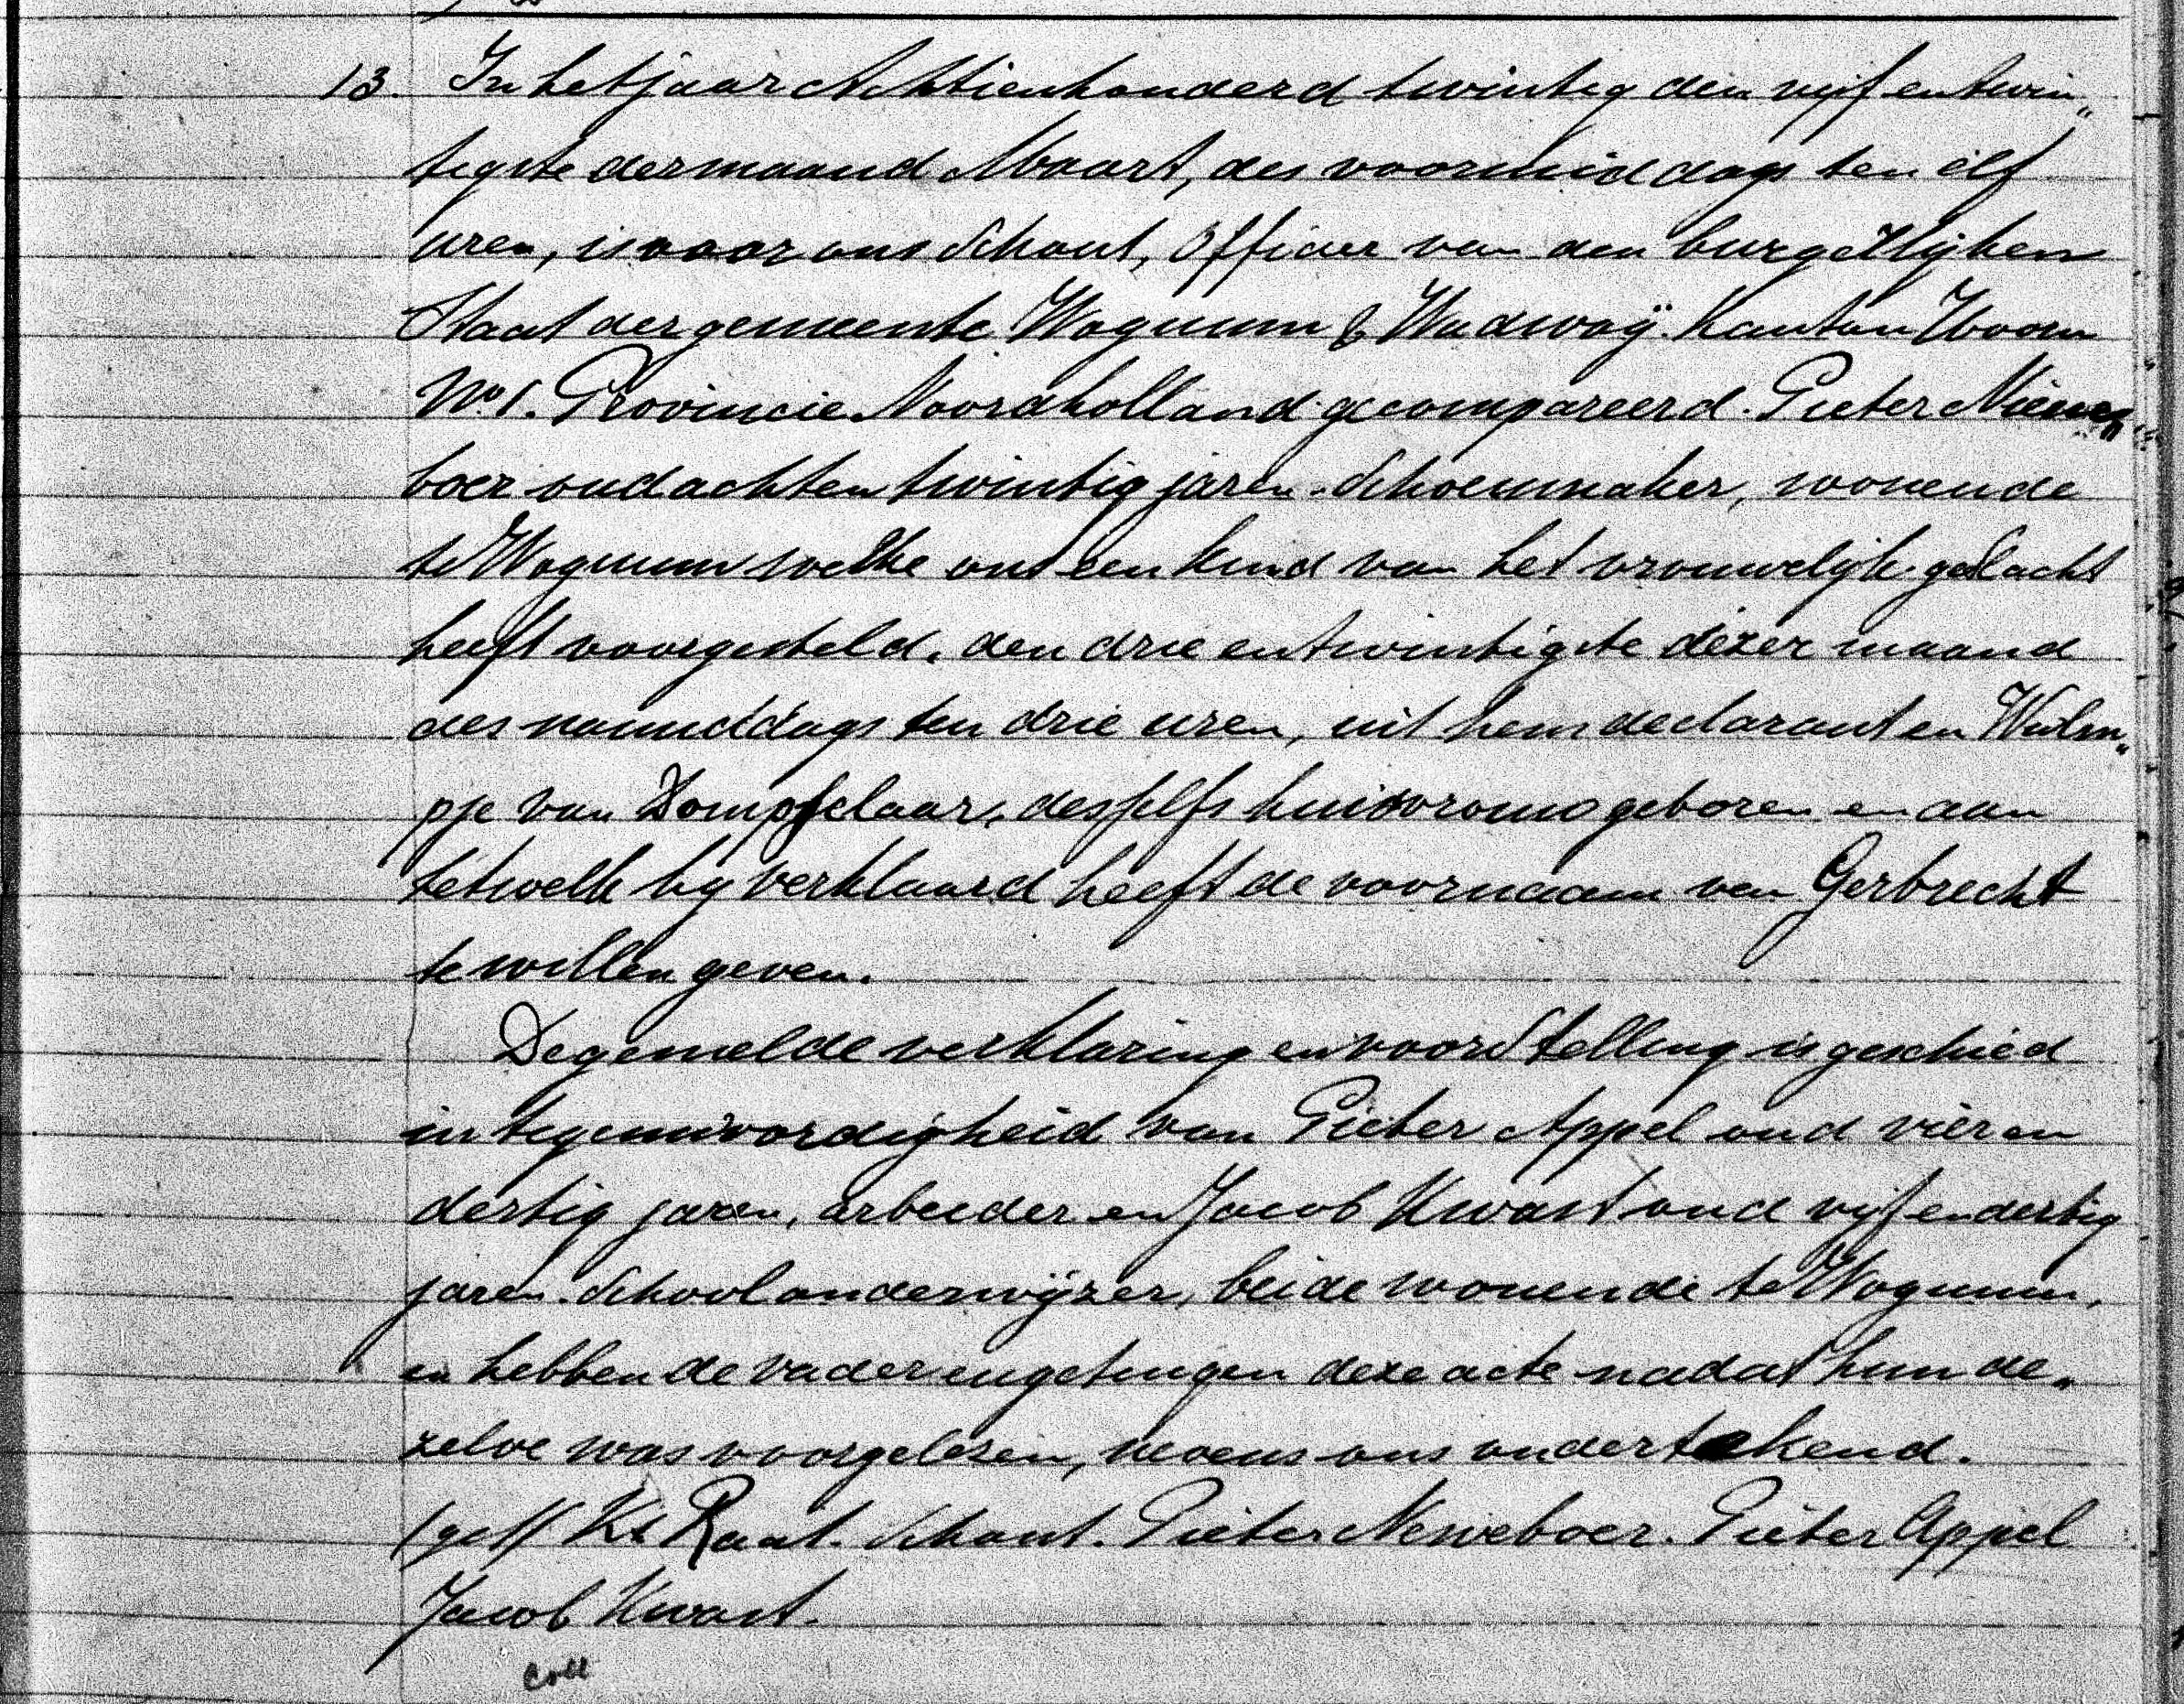 13. In het jaar Achttienhonderd twintig den vijfentwin„
tigste der maand Maart, des voormiddags ten elf
uren, is voor ons Schout, Officier van den burgerlijken
Staat der gemeente Wognum & Wadway. Kanton Hoorn
No 1. Provincie Noordholland gecompareerd. Pieter Nieuwe„
boer oud achtentwintig jaren. Schoenmaker, wonende
te Wognum welke ons een kind van het vrouwelijk geslacht
heeft voorgesteld, den drie entwintigste dezer maand
des namiddags ten drie uren, uit hem declarant en Welm„
pje van Dompselaar, desselfs huisvrouw geboren en aan
hetwelk hy verklaard heeft de voornaam van Gerbrecht
te willen geven.
De gemelde verklaring en voorstelling is geschied
in tegenwoordigheid van Pieter Appel oud vier en
dertig jaren, arbeider en Jacob Kwast oud vijfendertig
jaren. Schoolonderwijzer, beide wonende te Wognum,
en hebben de vader en getuigen deze acte nadat hun de„
zelve was voorgelezen, nevens ons ondertekend.
(get) Ks Raat. Schout. Pieter Neuweboer. Pieter Appel
Jacob Kwast.
Coll